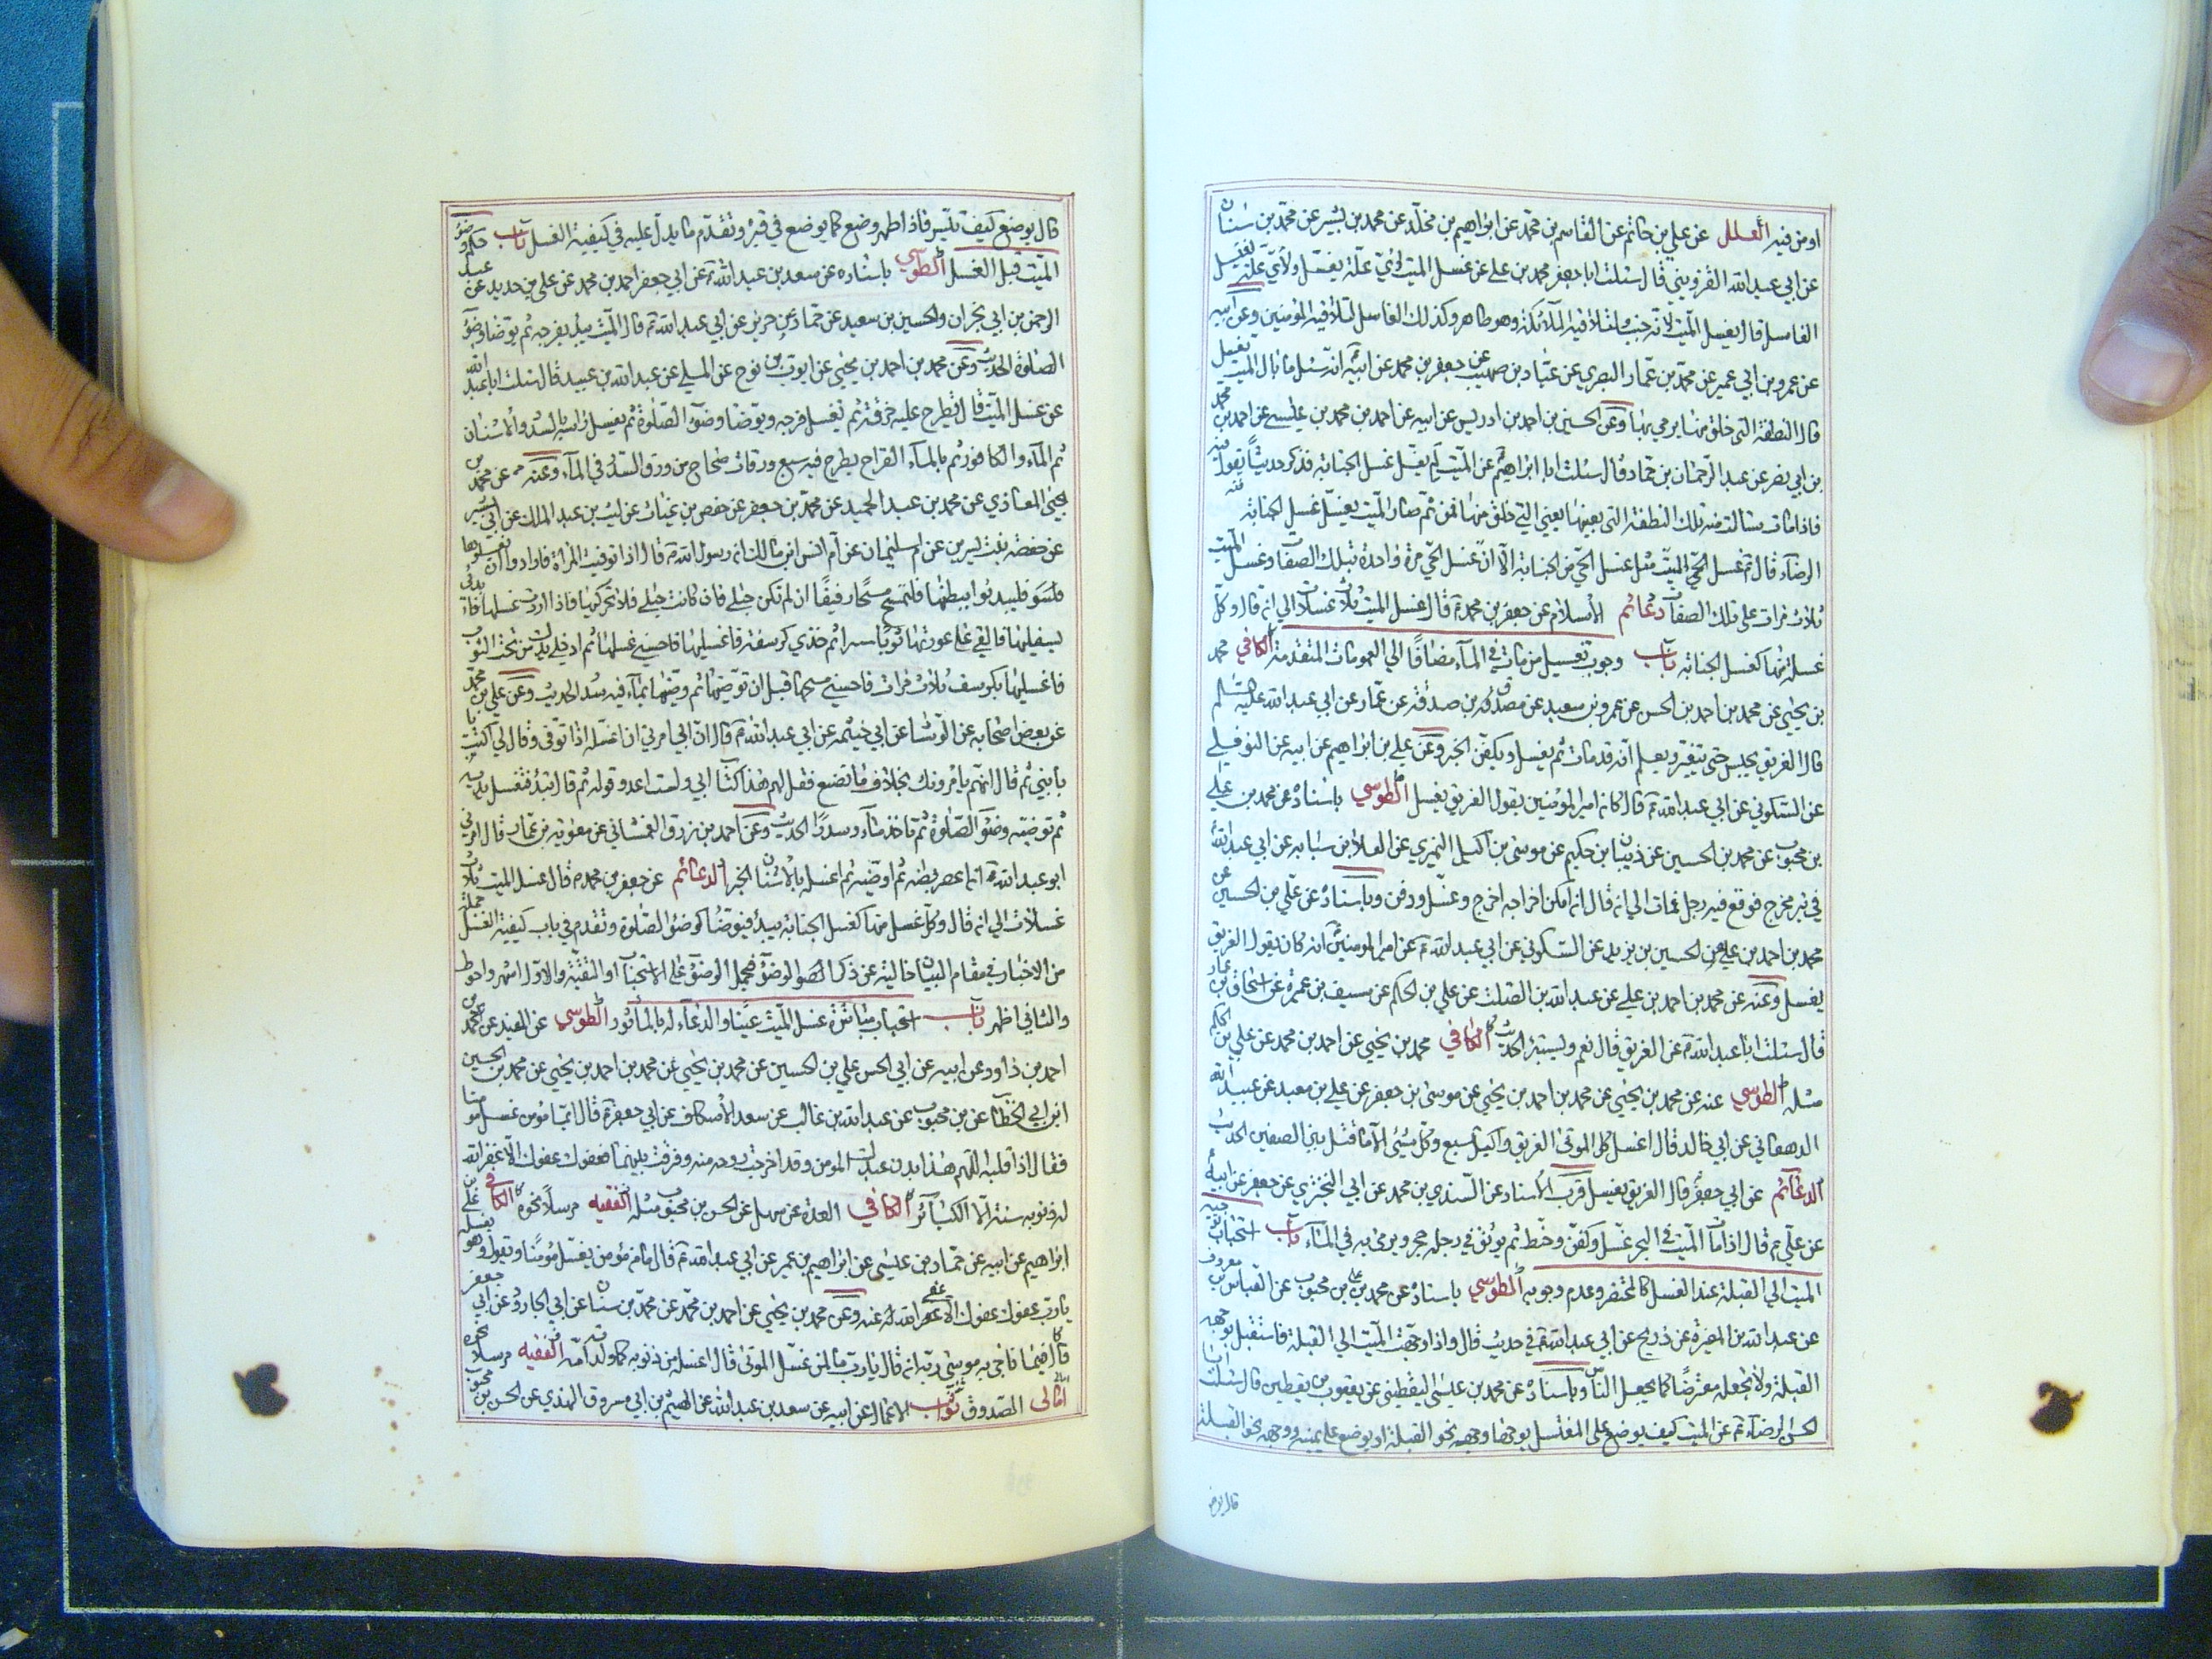 او من فيه العلل عن علي بن حاتم عن القاسم بن محمد عن ابراهيم بن مخلد عن محمد بن بشير عن محمد بن سنان
عن ابي عبد الله القزويني قال سئلت ابا جعفر محمد بن علي عن غسل الميت لاي علة يغسل ولاي علة يغتسل
الغاسل قال يغسل الميت لانه جنب لتلاقيه الملائكة وهو طاهر وكذلك الغاسل لتلاقيه المؤمنين وعن ابيه
عن عمرو بن ابي عمير عن محمد بن عمار البصري عن عباد بن صهيب عن جعفر بن محمد عن ابيه انه سئل ما بال الميت يغسل
قال النطفة التي خلق منها يرمي بها وعن الحسين بن احمد بن ادريس عن ابيه عن احمد بن محمد بن عيسى عن احمد بن محمد
بن ابي نصر عن عبد الرحمان بن حماد قال سئلت ابا ابراهيم عن الميت لم يغسل غسل الجنابة فذكر حديثا يقول فيه
فاذا مات سالت منه تلك النطفة التي بعينها يعني التي خلق منها فمن ثم صار الميت يغسل غسل الجنابة فقه
الرضا قال غسل الحي الميت مثل غسل الحي من الجنابة الا ان غسل الحي مرة واحدة بتلك الصفات وغسل الميت
ثلاث مرات على تلك الصفات دعائم الاسلام عن جعفر بن محمد قال غسل الميت ثلاث غسلات الي انه قال وكل
غسلة منها كغسل الجنابة باب وجوب تغسيل من مات في الماء مضافا الي العمومات المتقدمة الكافي محمد
بن يحيى عن محمد بن احمد بن الحسن عن عمرو بن سعيد عن مصدق بن صدقة عن عمار عن ابي عبد الله عليه السلام
قال الغريق يحبس حتى يتغير ويعلم انه قد مات ثم يغسل ويكفن الخبر وعن علي بن ابراهيم عن ابيه عن النوفلي
عن السكوني عن ابي عبد الله قال كان امير المؤمنين يقول الغريق يغسل الطوسي باسناده عن محمد بن علي
بن محبوب عن محمد بن الحسين عن ذبيان بن حكيم عن موسى بن اكيل النميري عن العلا بن سيابه عن ابي عبد الله
في بئر مخرج فوقع فيه رجل فمات الي انه قال ان امكن اخراجه اخرج وغسل ودفن وباسناده عن علي بن الحسين عن
محمد بن احمد بن علي عن الحسين بن يزيد عن السكوني عن ابي عبد الله عن امير المومنين انه كان يقول الغريق
يغسل وعنه عن محمد بن احمد بن علي عن عبد الله بن الصلت عن علي بن الحكم عن سيف بن عميرة عن اسحاق بن عمار
قال سئلت ابا عبد الله عن الغريق قال نعم ويستبرا الحديث الكافي محمد بن يحيى عن احمد بن محمد عن علي بن الحكم
مثله الطوسي عنه عن محمد بن يحيى عن محمد بن احمد بن يحيى عن موسى بن جعفر عن علي بن معبد عن عبيد الله
الدهقاني عن ابي خالد قال اغسل كل الموتى الغريق واكيل السبع وكل شيء الا ما قتل بين الصفين الحديث
الدعائم عن ابي جعفر قال الغريق يغسل قرب الاسناد عن السندي بن محمد عن ابي البختري عن جعفر عن ابيه
عن علي قال اذا مات الميت في البحر غسل وكفن وحنط ثم يوثق في رجله حجر ويرمي به في الماء باب استحباب توجيه
الميت الي القبلة عند الغسل كالمحتضر وعدم وجوبه الطوسي باسناده عن محمد بن علي بن محبوب عن العباس بن معروف
عن عبد الله بن المغيرة عن ذريح عن ابي عبد الله في حديث قال واذا وجهت الميت الي القبلة فاستقبل بوجهه
القبلة ولا تجعله معترضا كما يجعل الناس وباسناده عن محمد بن عيسى اليقطيني عن يعقوب بن يقطين قال سئلت ابا
الحسن الرضا عن الميت كيف يوضع على المغتسل بوجها وجهه نحو القبلة او يوضع على يمينه ووجهه نحو القبلة
قال يوضع
قال يوضع كيف تيسر فاذا طهر وضع كما يوضع في قبره وتقدم ما يدل عليه في كيفية الغسل باب حكم وضوء
الميت قبل الغسل الطوسي باسناده عن سعد بن عبد الله عن ابي جعفر احمد بن محمد عن علي بن حديد عن عبد
الرحمن بن ابي نجران والحسين بن سعيد عن حماد عن حريز عن ابي عبد الله قال الميت يبدء بفرجه ثم يوضا وضوء
الصلوة الحديث وعن محمد بن احمد بن يحيى عن ايوب بن نوح عن المسلي عن عبد الله بن عبيد قال سئلت ابا عبد الله
عن غسل الميت قال تطرح عليه خرقة ثم تغسل فرجه ويوضا وضوء الصلوة ثم يغسل راسه بالسدر والاشنان
ثم الماء والكافور ثم بالماء القراح يطرح فيه سبع ورقات صحاح من ورق السدر في الماء وعنه عن محمد بن
يحيى المعاذي عن محمد بن عبد الحميد عن محمد بن جعفر عن حفص بن غياث عن ليث بن عبد الملك عن ابي بشير
عن حفصة بنت سيرين عن ام سليمان عن ام انس ابن مالك ان رسول الله قال اذا توفيت المراة فارادوا ان يغسلوها
فليبدئوا ببطنها فلتمسح مسحا رفيقا ان لم تكن حبلى فان كانت حبلى فلا تحركيها فاذا اردت غسلها فابدئي
بسفليها فالقي على عورتها ثوبا ستيرا ثم خذي كرسفة فاغسليها فاحسني غسلها ثم ادخلي يدك من تحت الثوب
فاغسليها بكرسف ثلاث مرات فاحسني مسحها قبل ان توضيها ثم وضيها بماء فيه سدر الحديث وعن علي بن محمد
عن بعض اصحابه عن الوشا عن ابي خيثمه عن ابي عبد الله قال ان ابي امرني ان اغسله اذا توفى وقال لي اكتب يا
بني ثم قال انهم يامرونك بخلاف ما تصنع فقل لهم هذا كتاب ابي ولست اعدو قوله ثم قال تبدء فتغسل يديه
ثم توضيه وضوء الصلوة ثم تاخذ ماء وسدرا الحديث وعن احمد بن رزق الغمشاني عن معوية بن عمار قال امرني
ابو عبد الله ان اعصر بطنه ثم اوضيه ثم اغسله بالاشنان الخبر الدعائم عن جعفر بن محمد قال غسل الميت ثلاث
غسلات الي انه قال وكل غسل منها كغسل الجنابة يبدء فيوضا كوضوء الصلوة وتقدم في باب كيفية الغسل جملة
من الاخبار في مقام البيان خالية عن ذكر الوضوء فيحمل الوضوء على الاستحباب او التقية والاول اشهر واحوط
والثاني اظهر باب استحباب مباشرة غسل الميت عينا والدعاء له بالماثور الطوسي عن المفيد عن محمد بن
احمد بن داود عن ابيه عن ابي الحسن علي بن الحسين عن محمد بن يحيى عن محمد بن احمد بن يحيى عن محمد بن الحسين
ابن ابي الخطاب عن بن محبوب عن عبد الله بن غالب عن سعد الاسكاف عن ابي جعفر قال ايما مؤمن غسل مومنا
فقال اذا قلبه اللهم هذا بدن عبدك المومن وقد اخرجت روحه منه وفرقت بينهما فعفوك عفوك الا غفر الله
له ذنوبه سنة الا الكبائر الكافي العدة عن سهل عن الحسن بن محبوب مثله الفقيه مرسلا نحوه الكافي علي بن
ابراهيم عن ابيه عن حماد بن عيسى عن ابراهيم بن عمر عن ابي عبد الله قال ما من مؤمن يغسل مؤمنا ويقول وهو يغسله
يارب عفوك عفوك الا عفى الله عنه وعن محمد بن يحيى عن احمد بن محمد عن محمد بن سنان عن ابي الجارود عن ابي جعفر
قال فيما ناجى به موسى ربه انه قال يا رب ما لمن غسل الموتى قال اغسله من ذنوبه كما ولدته امه الفقيه مرسلا نحوه
امالى الصدوق ثواب الاعمال عن ابيه عن سعد بن عبد الله عن الهيثم بن ابي مسروق النهدي عن الحسن بن محبوب